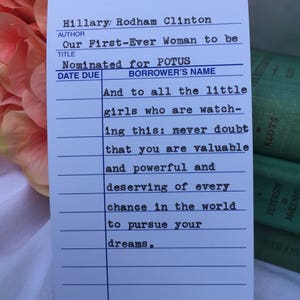 Hillary Rodham Clinton
AUTHOR
Our First-Ever Woman to be
TITLE
Nominated for POTUS
DATE DUE BORROWER'S NAME
And to all the little
girls who are watch-
ing this: never doubt
that you are valuable
and powerful and
deserving of every
chance in the world
to pursue your
dreams.